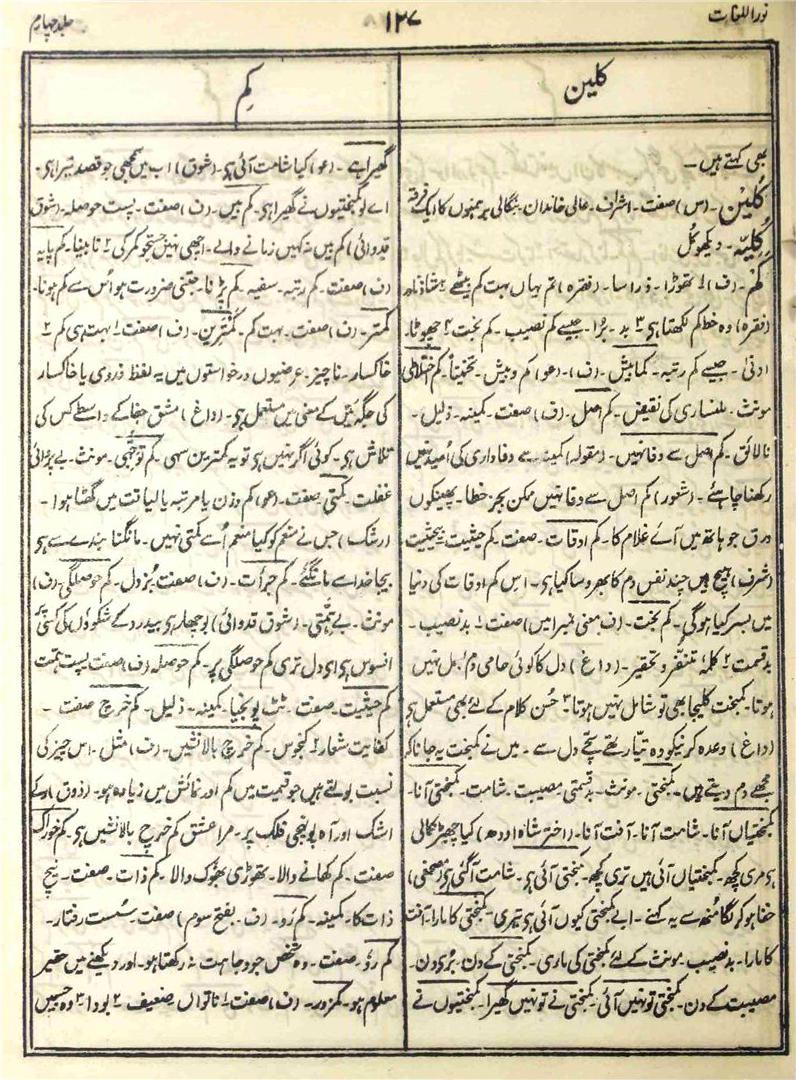 نور اللغات
۱۲۷
جلد چہارم
کلین
کم
بھی کہتے ہیں۔
کُلِیْن۔ (س) صفت۔ اشراف۔ عالی خاندان۔ بنگالی برہمنوں کا ایک فرقہ
کُلِیّہ۔ دیکھو کُل
کَمْ۔ (ف) ۱ تھوڑا۔ ذرا سا۔ (فقرہ) تم یہاں بہت کم بیٹھے ۲ شاذ نادر
(فقرہ) وہ خط کم لکھتا ہی ۳ بد۔ بُرا۔ جیسے کم نصیب۔ کم بخت ۴ چھوٹا۔
ادنیٰ۔ جیسے کم رتبہ۔ کمابیش۔ (ف)۔ (عو) کم و بیش۔ تخمیناً۔ کم اختلاطی
مونث۔ ملنساری کی نقیض۔ کم اصل۔ (ف) صفت۔ کمینہ۔ ذلیل۔
نالائق۔ کم اصل سے وفا نہیں۔ (مقولہ) کمینہ سے وفاداری کی اُمید نہیں
رکھنا چاہئے۔ (شعور) کم اصل سے وفا نہیں ممکن بجز خطا۔ پھینکوں
ورق جو ہاتھ میں آئے غلام کا۔ کم اوقات۔ صفت۔ کم حیثیت بے حیثیت
(شرف) ہیچ ہیں چند نفس دم کا بھروسا کیا ہی۔ اس کم اوقات کی دنیا
میں بسر کیا ہوگی۔ کم بخت۔ (ف معنی نمبر ۱ میں) صفت ۱ بد نصیب۔
بد قسمت ۲ کلمۂ تنفّر و تحقیر۔ (داغ) دل کا کوئی حامی دم بسمل نہیں
ہوتا۔ کمبخت کلیجا بھی تو شامل نہیں ہوتا ۳ حُسن کلام کے لئے بھی مستعمل ہی
(داغ) وعدہ کرنیکو وہ تیار تھے سچّے دل سے۔ میں نے کمبخت یہ جانا کہ
مجھے دم دیتے ہیں۔ کمبختی۔ مونث۔ بد قسمتی۔ مصیبت۔ شامت۔ کمبختی آنا۔
کمبختیاں آنا۔ شامت آنا۔ آفت آنا۔ (اختر شاہ اودھ) کیا چھیڑ نکالی
ہی مری کچھ۔ کمبختیاں آئی ہیں تری کچھ۔ کمبختی آئی ہی۔ شامت آگئی ہی (مصحفی)
خفا ہو کر لگا مُنھ سے یہ کہنے۔ ابے کمبختی کیوں آئی ہی تیری۔ کمبختی کا مارا۔ آفت
کا مارا۔ بد نصیب۔ مونث کے لئے کمبختی کی ماری۔ کمبختی کے دن۔ بُری دن۔
مصیبت کے دن۔ کمبختی تو نہیں آئی۔ کمبختی نے تو نہیں گھیرا۔ کمبختیوں نے
گھیرا ہے۔ (عو) کیا شامت آئی ہی۔ (شوق) اب میں سمجھی جو قصد تیرا ہی۔
اے لو کمبختیوں نے گھیرا ہی۔ کم بیں۔ (ف) صفت۔ پست حوصلہ۔ (شوق
قدوائی) کم بیں نہ کہیں زمانے والے۔ اچھی نہیں جستجو کمر کی ۲ نابینا۔ کم پایہ
(ف) صفت۔ کم رتبہ۔ سفیہ۔ کم پڑنا۔ جتنی ضرورت ہو اُس سے کم ہونا۔
کمتر۔ (ف) صفت۔ بہت کم۔ کمترین۔ (ف) صفت ۱ بہت ہی کم ۲
خاکسار۔ ناچیز۔ عرضیوں درخواستوں میں یہ لفظ فدوی یا خاکسار
کی جگہ میں کے معنی میں مستعمل ہی۔ (داغ) مشق جفا کے واسطے کس کی
تلاش ہی۔ کوئی اگر نہیں ہی تو یہ کمترین سہی۔ کم توجّہی۔ مونث۔ بے پروائی
غفلت۔ کمتی۔ صفت۔ (عو) کم وزن یا مرتبہ یا لیاقت میں گھٹا ہوا۔
(رشک) جس نے منعم کو کیا منعم اُسے کمتی نہیں۔ مانگنا بندے سے ہی
بیجا خدا سے مانگئے۔ کم جرأت۔ (ف) صفت بُزدل۔ کم حوصلگی۔ (ف)
مونث۔ بے ہمّتی۔ (شوق قدوائی) بوچھار ہی بیدرد کے شکووں کی کسی پر
افسوس ہی اے دل تری کم حوصلگی پر۔ کم حوصلہ (ف) صفت پست ہمّت
کم حیثیت۔ صفت۔ ٹٹ پونجیا۔ کمینہ۔ ذلیل۔ کم خرچ صفت۔
کفایت شعار ۲ کنجوس۔ کم خرچ بالا نشیں۔ (ف) مثل۔ اس چیز کی
نسبت بولتے ہیں جو قیمت میں کم اور نمائش میں زیادہ ہو۔ (ذوق)
اشک اور آہ پہونچی فلک پر۔ مرا عشق کم خرچ بالا نشیں ہی۔ کم خوراک
صفت۔ کم کھانے والا۔ تھوڑی بھُوک والا۔ کم ذات۔ صفت۔ نیچ
ذات کا۔ کمینہ۔ کم رَو۔ (ف۔ بفتح سوم) صفت۔ سُست رفتار۔
کم رُو۔ صفت۔ وہ شخص جو وجاہت نہ رکھتا ہو۔ اور دیکھنے میں حقیر
معلوم ہو۔ کمزور۔ (ف) صفت ۱ ناتواں ضعیف ۲ بودا ۳ وہ جسمیں